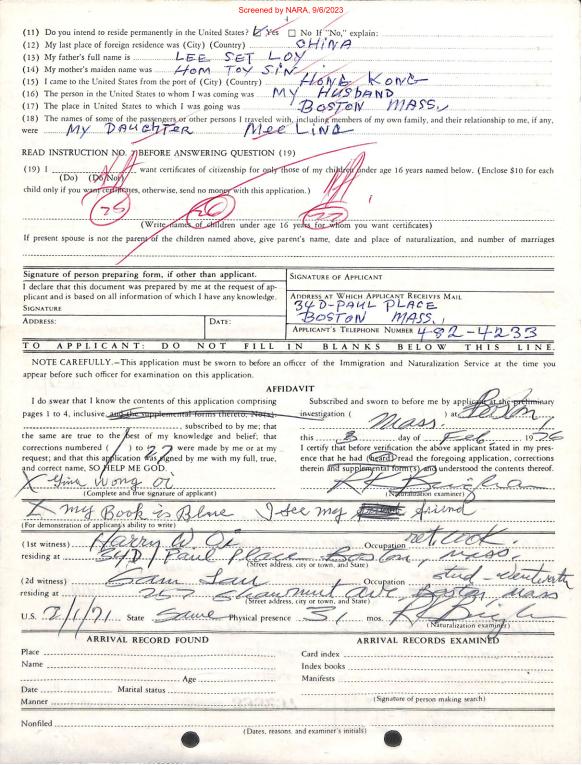 Screened by NARA, 9/6/2023
4
(11) Do you intend to reside permanently in the United States? ☑ Yes ☐ No If "No," explain:
(12) My last place of foreign residence was (City) (Country) CHINA
(13) My father's full name is LEE SET LOY
(14) My mother's maiden name was HOM TOY SIN
(15) I came to the United States from the port of (City) (Country) HONG KONG
(16) The person in the United States to whom I was coming was MY HUSBAND
(17) The place in the United States to which I was going was BOSTON MASS,
(18) The names of some of the passengers or other persons I traveled with, including members of my own family, and their relationship to me, if any,
were MY DAUGHTER MEE LING
READ INSTRUCTION NO. 7 BEFORE ANSWERING QUESTION (19)
(19) I want certificates of citizenship for only those of my children under age 16 years named below. (Enclose $10 for each
(Do) (Do Not)
child only if you want certificates, otherwise, send no money with this application.)
25 26 27
(Write names of children under age 16 years for whom you want certificates)
If present spouse is not the parent of the children named above, give parent's name, date and place of naturalization, and number of marriages
Signature of person preparing form, if other than applicant.
I declare that this document was prepared by me at the request of applicant and is based on all information of which I have any knowledge.
SIGNATURE
ADDRESS: DATE:
SIGNATURE OF APPLICANT
ADDRESS AT WHICH APPLICANT RECEIVES MAIL
34D-PAUL PLACE
BOSTON MASS,
APPLICANT'S TELEPHONE NUMBER 482-4233
TO APPLICANT: DO NOT FILL IN BLANKS BELOW THIS LINE.
NOTE CAREFULLY.—This application must be sworn to before an officer of the Immigration and Naturalization Service at the time you
appear before such officer for examination on this application.
AFFIDAVIT
I do swear that I know the contents of this application comprising
pages 1 to 4, inclusive, and the supplemental forms thereto, No(s)
subscribed to by me; that
the same are true to the best of my knowledge and belief; that
corrections numbered ( 1 ) to 27 were made by me or at my
request; and that this application was signed by me with my full, true,
and correct name, SO HELP ME GOD.
X Gina Wong Oi
(Complete and true signature of applicant)
Subscribed and sworn to before me by applicant at the preliminary
investigation ( ) at Boston,
Mass.
this 3 day of Feb, 1976
I certify that before verification the above applicant stated in my presence that he had (heard) read the foregoing application, corrections
therein and supplemental form(s) and understood the contents thereof.
(Naturalization examiner)
X my Book is Blue I see my friend
(For demonstration of applicant's ability to write)
(1st witness) Harry W. Oi Occupation
residing at 34D Paul Place Boston, Mass.
(Street address, city or town, and State)
(2d witness) Occupation stud - Wentworth
residing at 257 Shawmut Ave, Boston Mass
(Street address, city or town, and State)
U.S. 7/1/71 State Same Physical presence 51 mos.
(Naturalization examiner)
ARRIVAL RECORD FOUND
Place
Name
Age
Date Marital status
Manner
ARRIVAL RECORDS EXAMINED
Card index
Index books
Manifests
(Signature of person making search)
Nonfiled
(Dates, reasons, and examiner's initials)